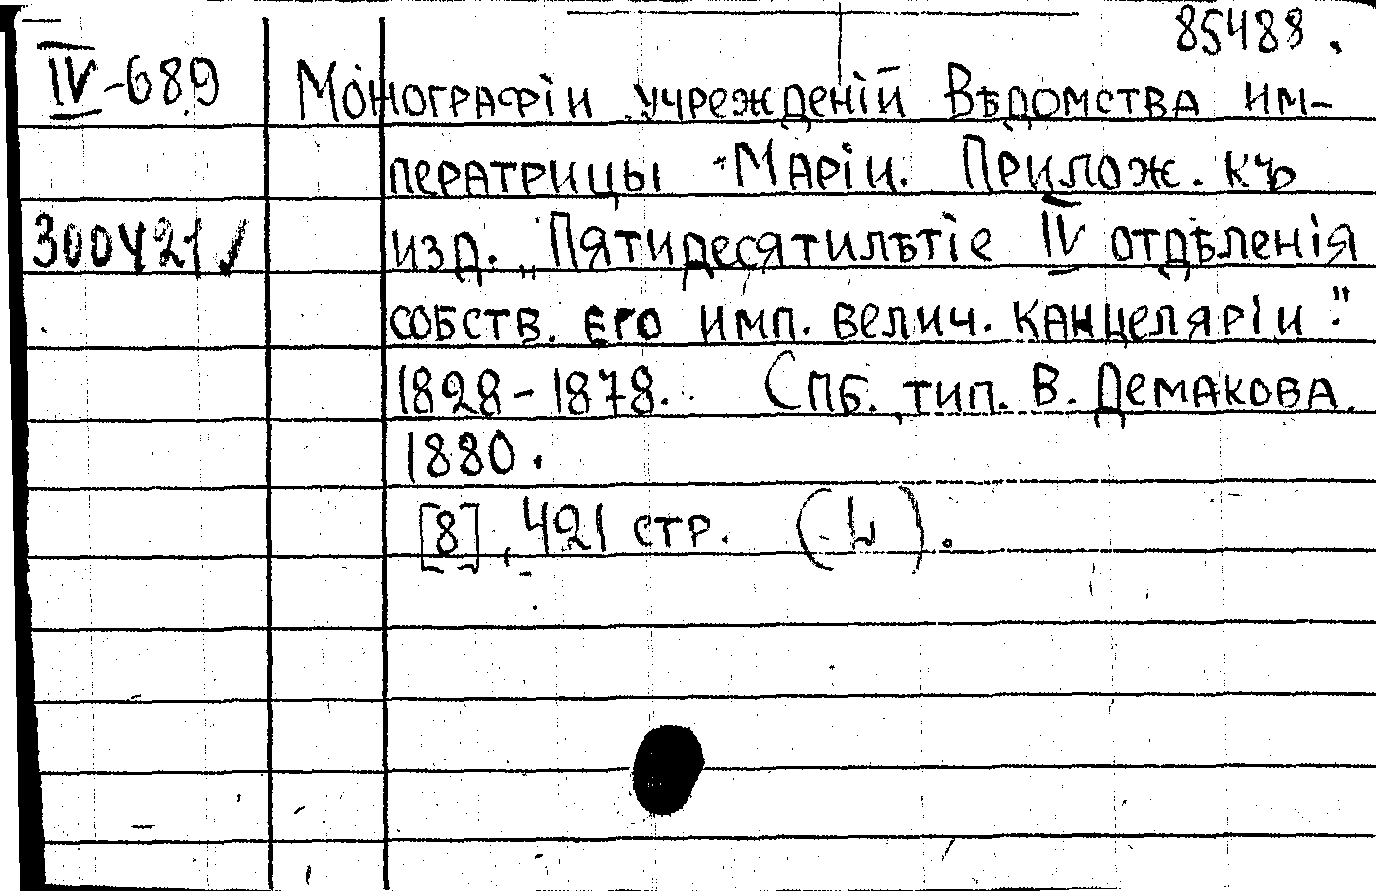 85488.
IV-689 Монографіи учрежденій Вѣдомства им-
ператрицы Маріи. Прилож. къ
300421✓ изд. „Пятидесятилѣтіе IV отдѣленія
собств. его имп. велич. канцеляріи."
1828-1878. Спб. тип. В. Демакова.
1880.
[8], 421 стр. (L).